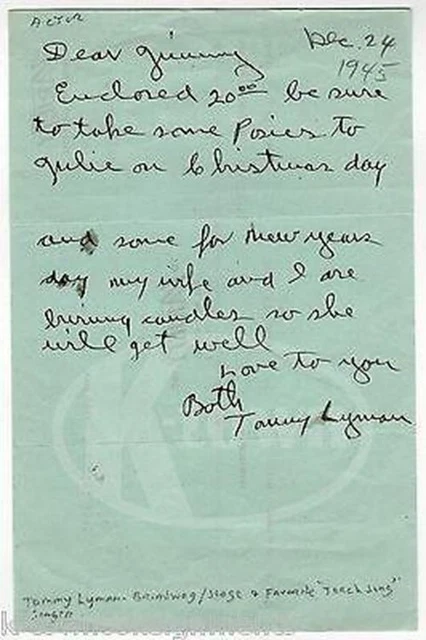 ACTOR
Dec. 24
1945
Dear Jimmy
Enclosed 20⁰⁰ be sure
to take some Posies to
Julie on Christmas day
and some for New years
day my wife and I are
burning candles so she
will get well
Love to you
Both
Tommy Lyman
Tommy Lyman. Broadway/Stage & Favorite "Torch Song"
Singer